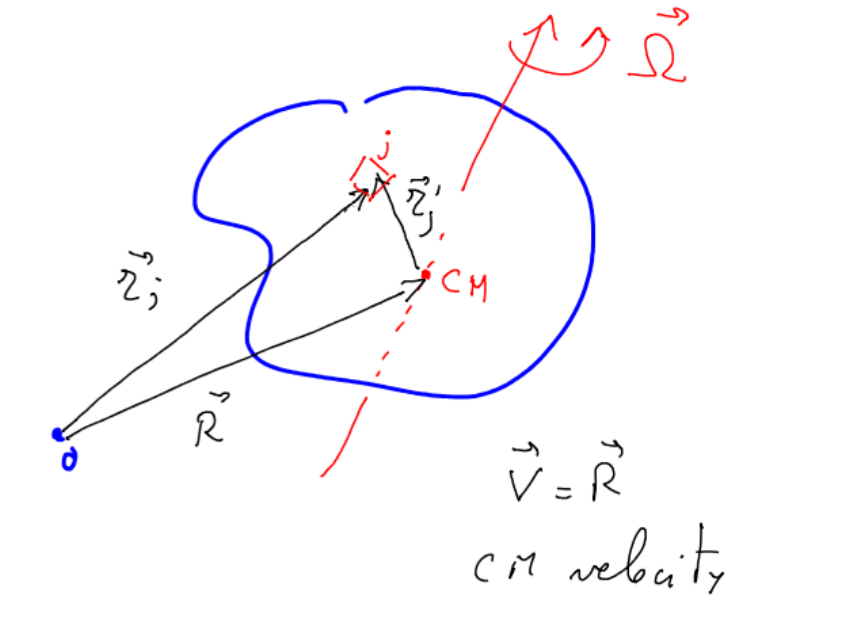 Ω⃗
j
r⃗j'
r⃗j
CM
R⃗
O
V⃗ = R⃗
CM velocity